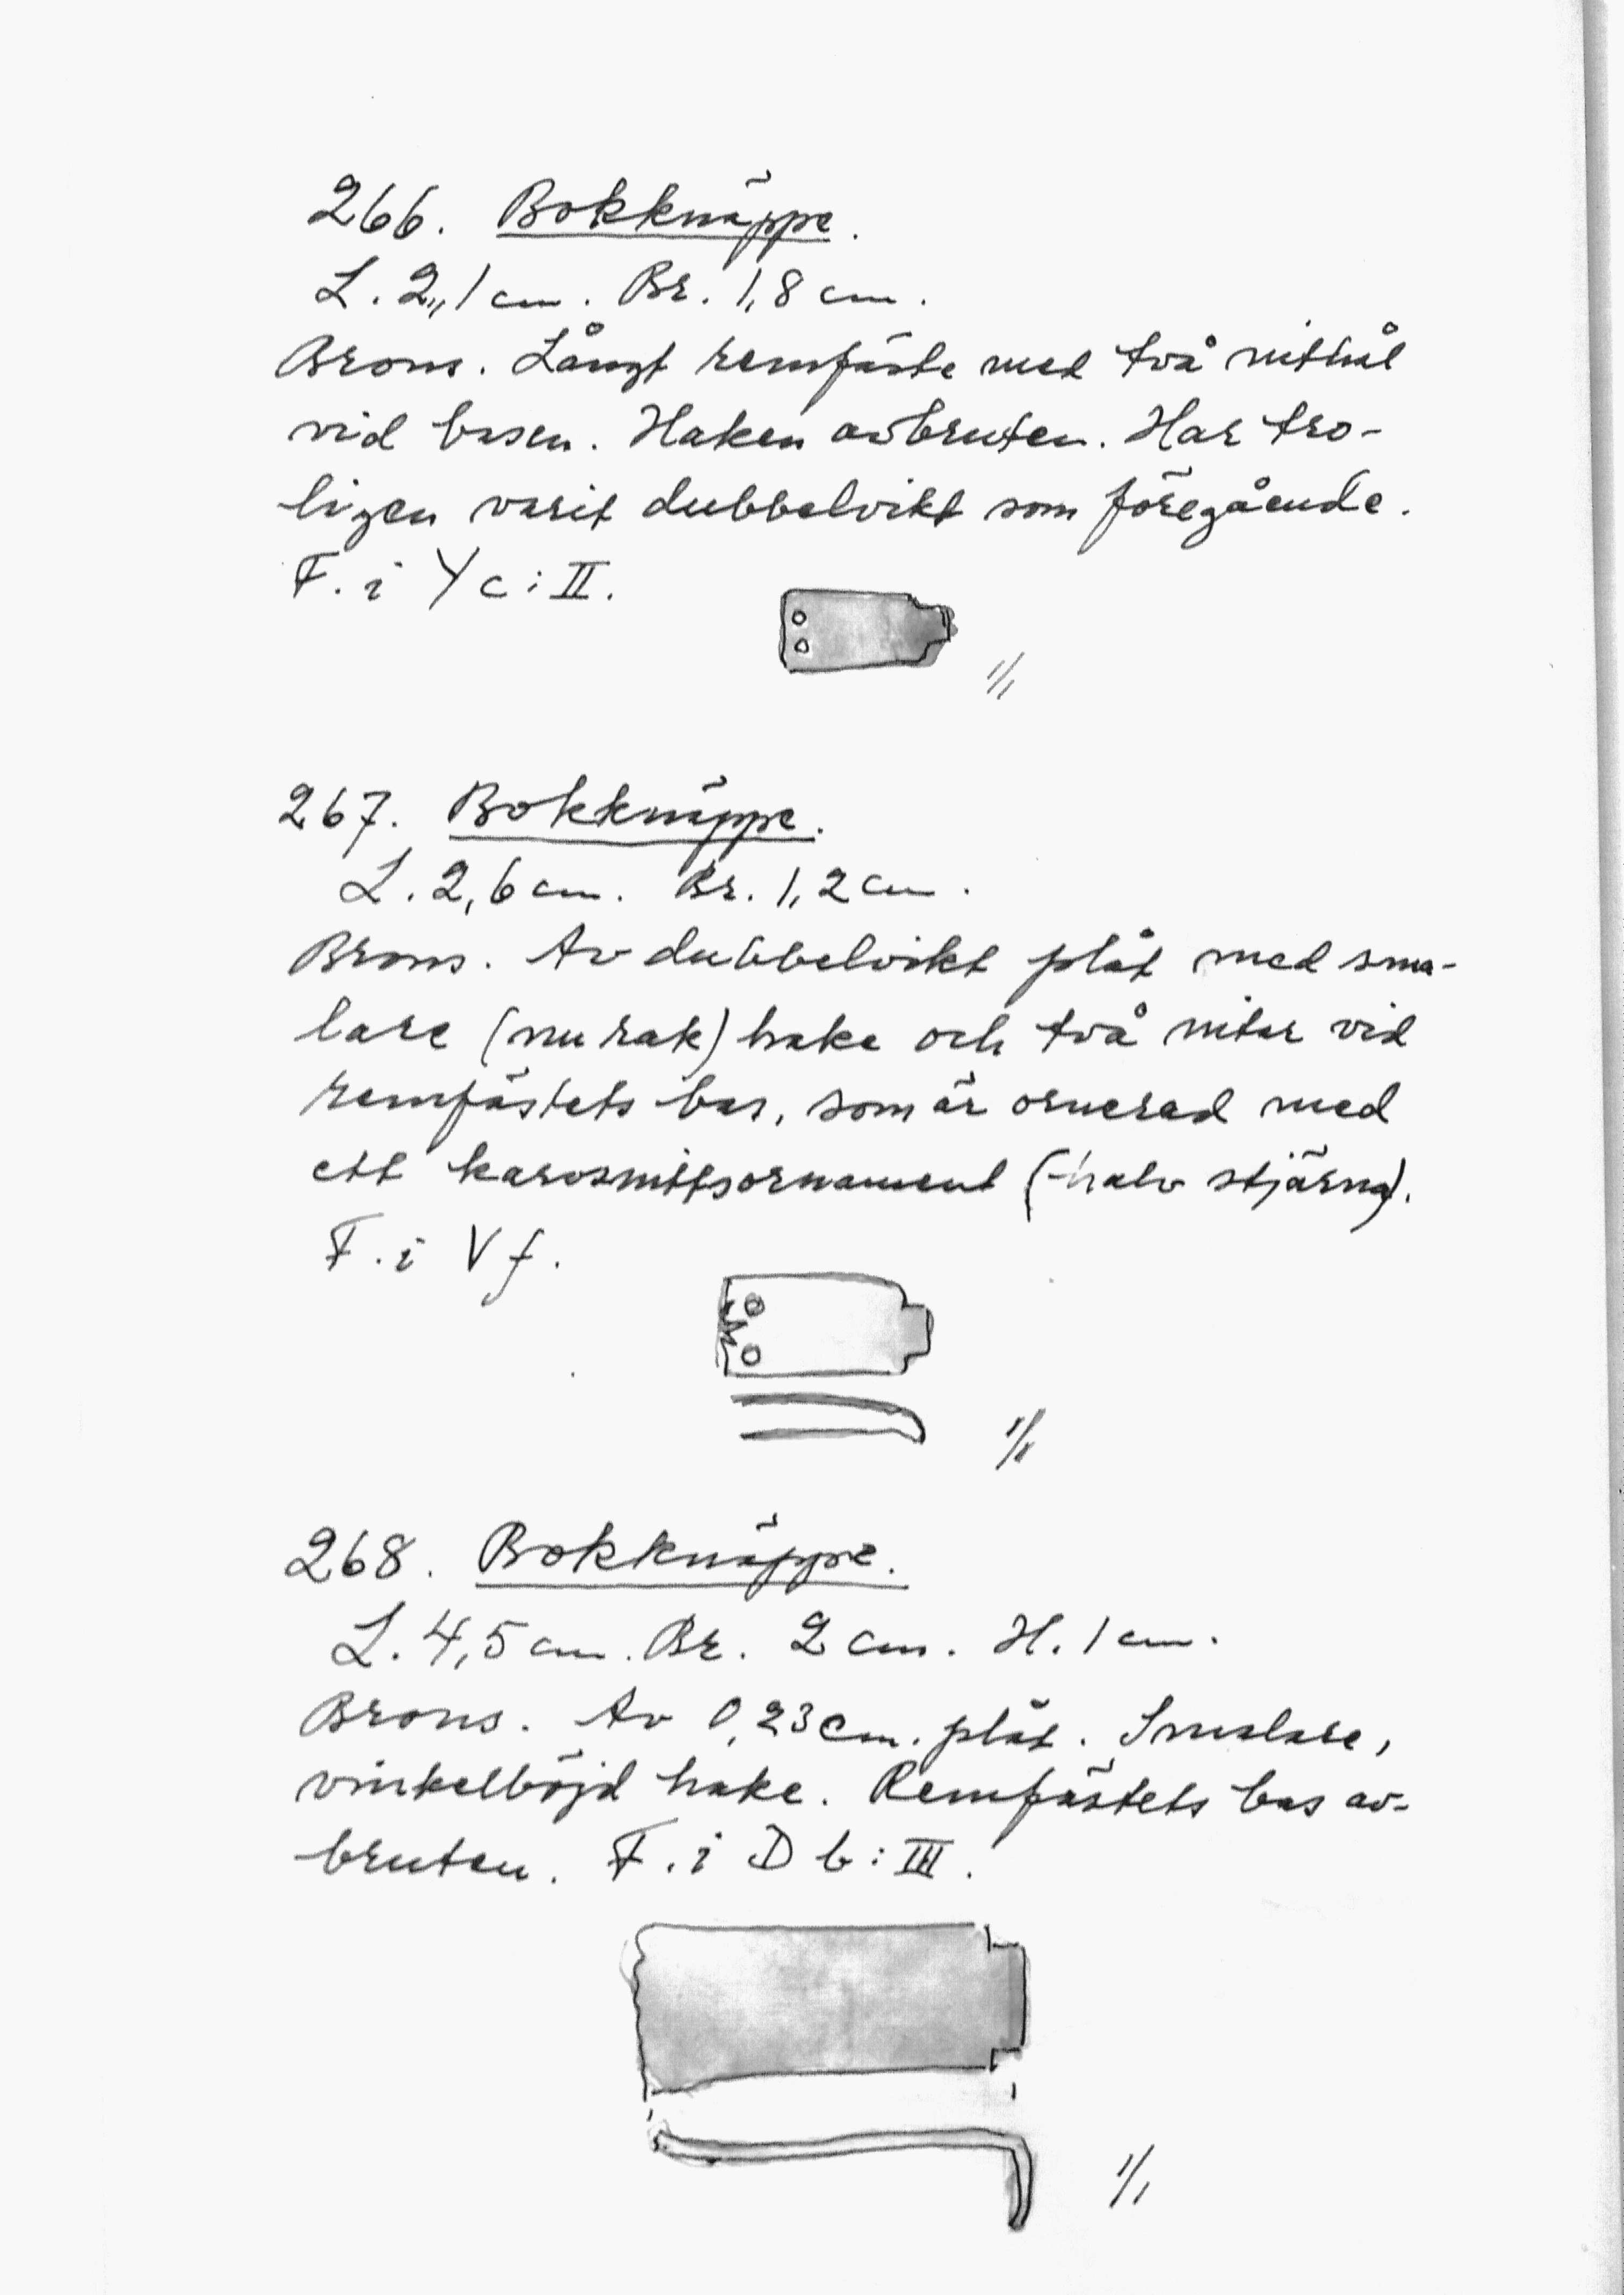 266. Bokknäppe.
L. 2,1 cm. Br. 1,8 cm.
Brons. Långt remfäste med två nithål
vid basen. Haken avbruten. Har tro-
ligen varit dubbelvikt som föregående.
F. i Yc: II.
1/1
267. Bokknäppe.
L. 2,6 cm. Br. 1,2 cm.
Brons. Av dubbelvikt plåt med sma-
lare (nu rak) hake och två nitar vid
remfästets bas, som är ornerad med
ett karvsnittsornament (halv stjärna).
F. i Vf.
1/1
268. Bokknäppe.
L. 4,5 cm. Br. 2 cm. H. 1 cm.
Brons. Av 0,23 cm. plåt. Smalare,
vinkelböjd hake. Remfästets bas av-
bruten. F. i Db: III.
1/1